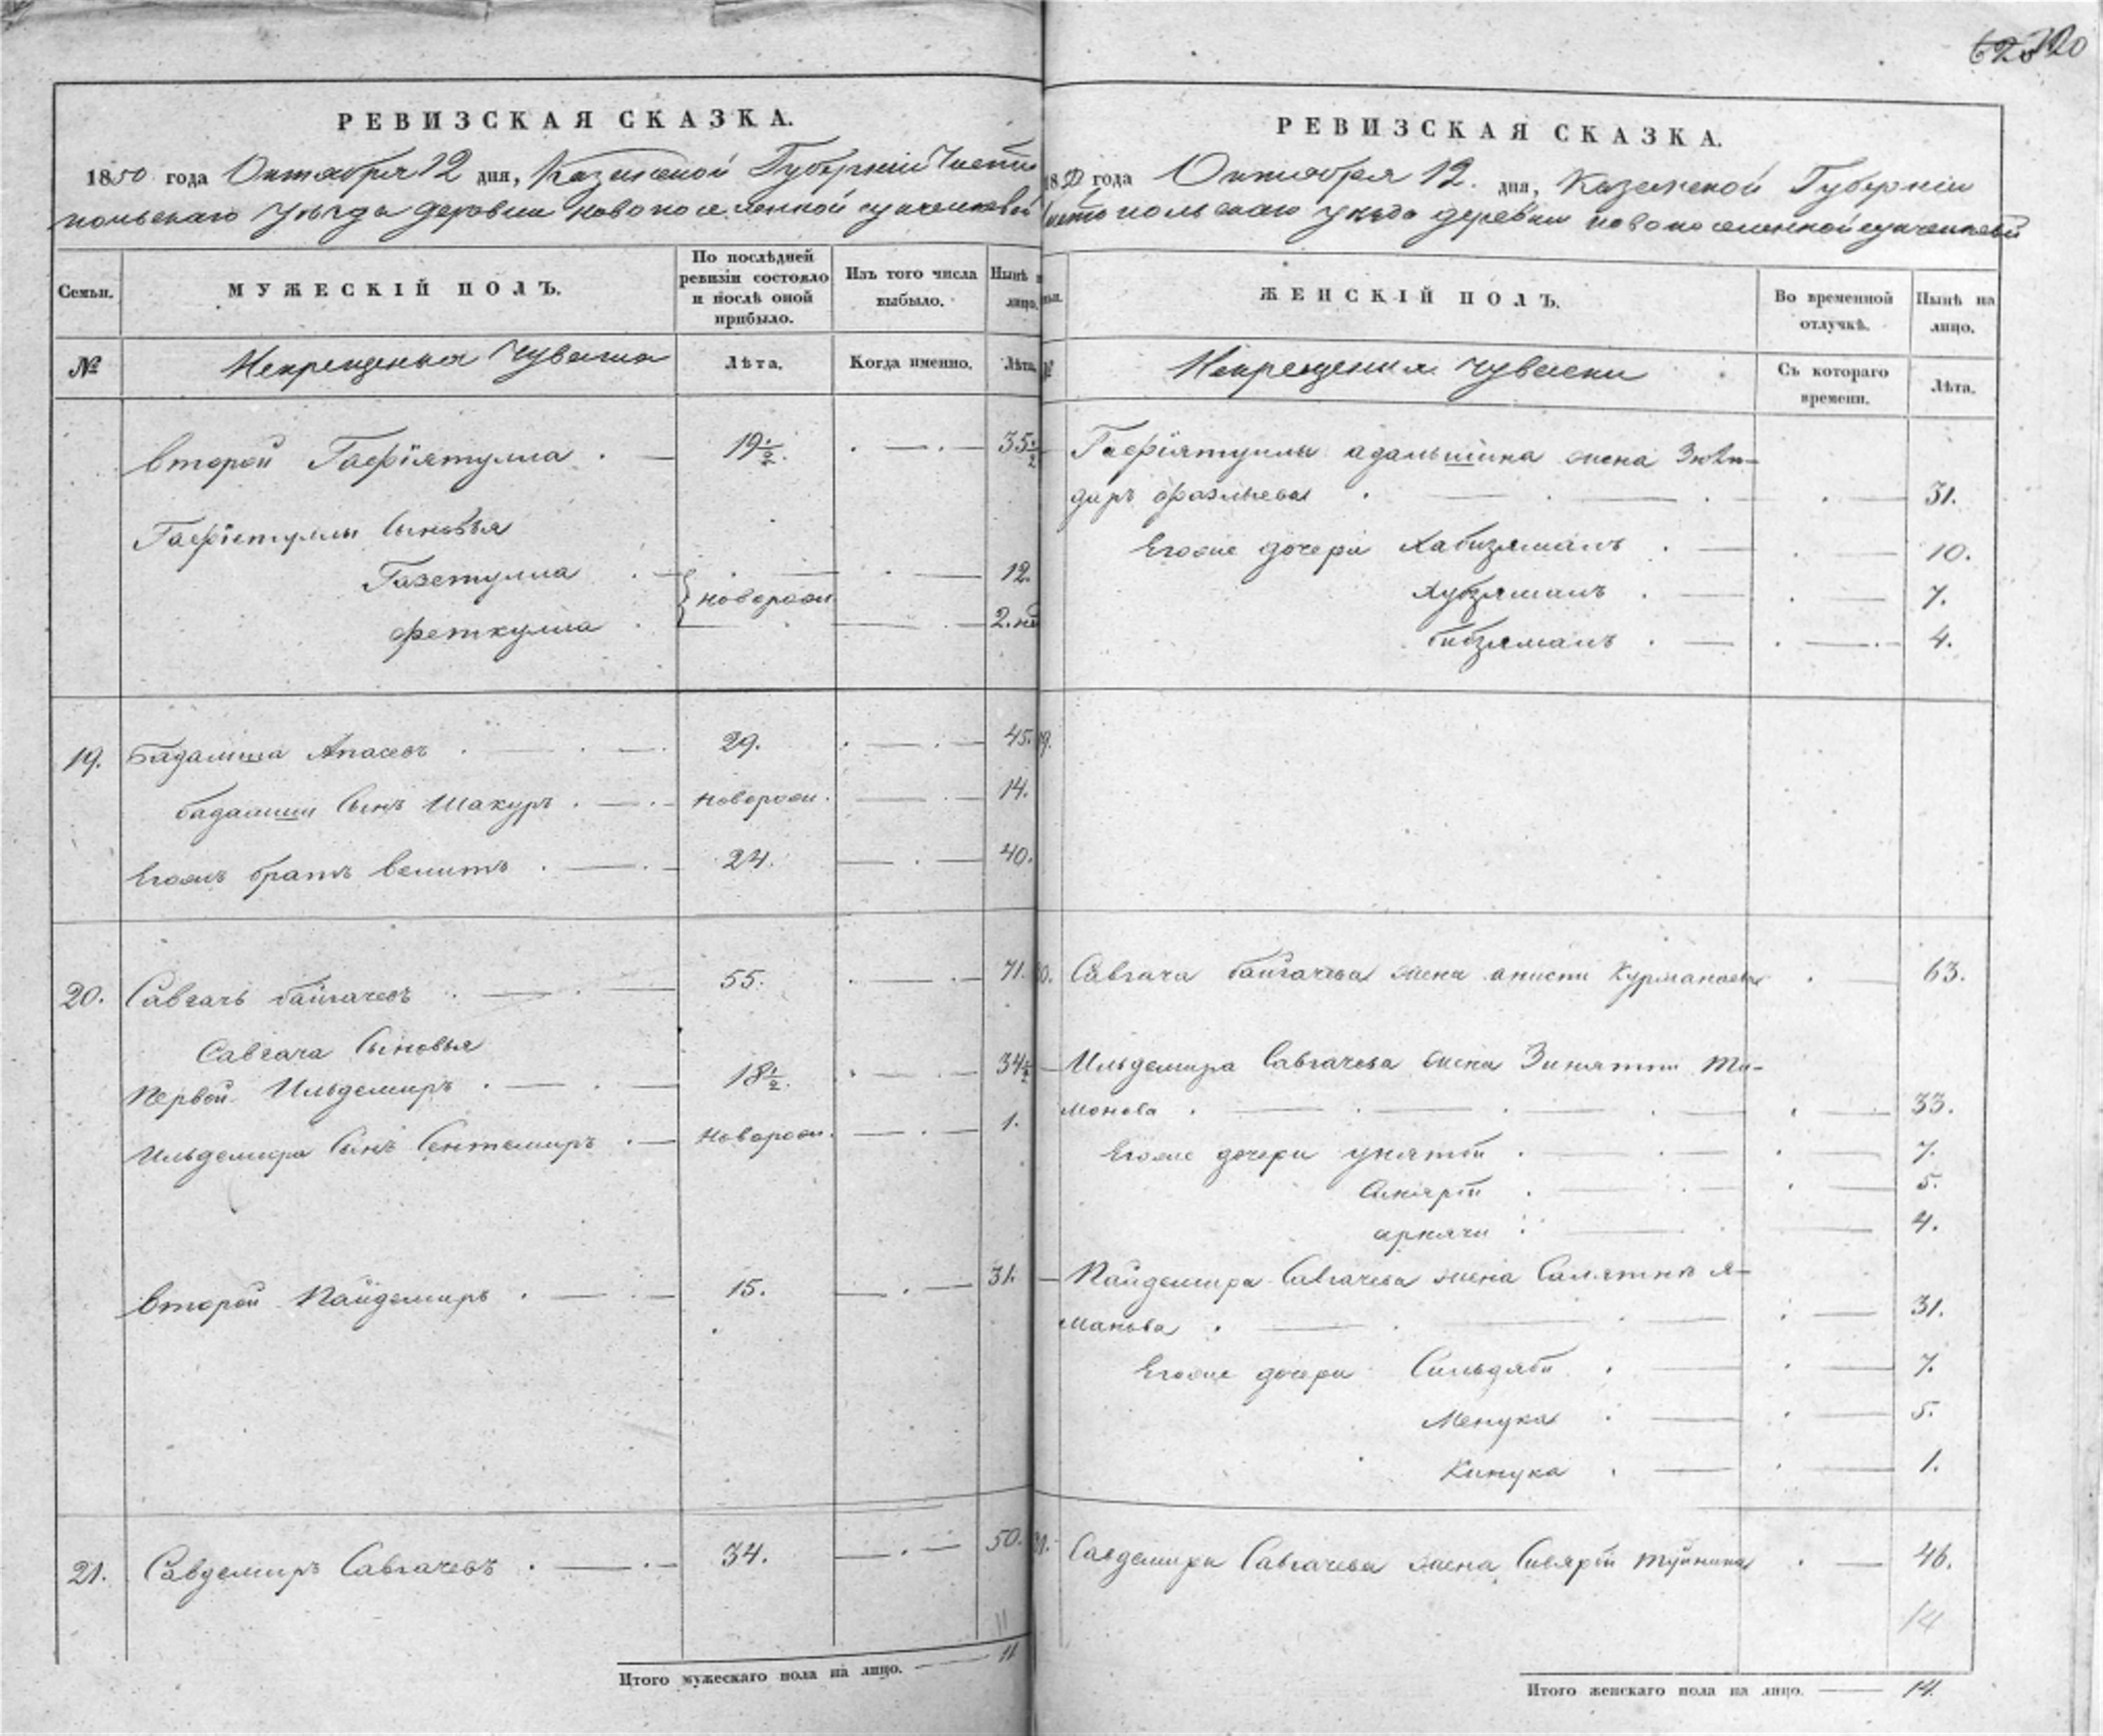 120
РЕВИЗСКАЯ СКАЗКА.
1850 года Октября 12 дня, Казанской Губернiи Чисто
польскаго уезда деровни новопоселенной
Семьи.
МУЖЕСКIЙ ПОЛЪ.
По послѣдней ревизiи состояло и послѣ оной прибыло.
Изъ того числа выбыло.
Нынѣ на лицо.
№
Некрещеныя Чуваша
Лѣта.
Когда именно.
Лѣта.
второй Гафiятулла . — 19½. . — . — 35½
Гафiетуллы сыновья
Газетулла . — . — . — 12.
новорож.
феткулла . — . — 2. не
19. Бадамша Апасевъ . — . — . 29. . — . — 45.
бадамши сынъ Шакуръ . — . новорож. — . — 14.
Егожъ братъ велитъ . — . 24. — . — 40.
20. Савгачь байгачевъ . — . — 55. . — . — 71.
Савгача сыновья
первой Ильдемиръ . — . — 18½. . — . — 34½
Ильдемира сынъ Сентемиръ . — новорож. — . — 1.
второй Пайдемиръ . — . — 15. — . — 31.
21. Савдемиръ Савгачевъ . — . — 34. — . — 50.
11
Итого мужескаго пола на лицо. — 11
РЕВИЗСКАЯ СКАЗКА.
1850 года Октября 12. дня, Казанской Губернiи
Чистопольскаго уезда деревни новопоселенной
ЖЕНСКIЙ ПОЛЪ.
Во временной отлучкѣ.
Нынѣ на лицо.
№
Некрещеныя чувашки
Съ котораго времени.
Лѣта.
Гафiятуллы адамышина жена Зюль-
даръ фазлыева . — . — . . — 31.
Егоже дочери Хабизямалъ . — . — 10.
Хубзямалъ . — . — 7.
бибзямалъ . — . — . 4.
19.
20. Савгача байгачева жена аписти Курманаева . — 63.
— Ильдемира Савгачева жена Зинятпи Ти-
монова . — . — . — . . — 33.
Егоже дочери унятби . — . — . — 7.
Синярпи . — . — . — 5.
арнячи . — . — 4.
— Пайдемира Савгачева жена Салятпи я-
манова . — . — . — . — 31.
Егоже дочери Сильдяби . — . — 7.
Менука . — . — 5.
Кинука . — . — 1.
21. Савдемира Савгачева жена Сивярпи туйкина . — 46.
14
Итого женскаго пола на лицо. — 14.